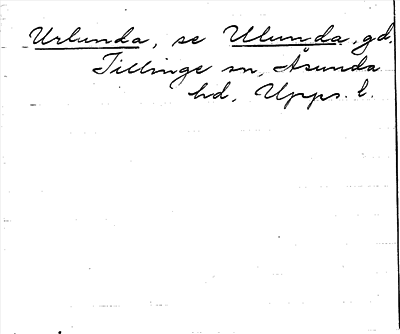 Urlunda, se Ulunda, gd,
Tillinge sn, Åsunda
hd, Upps. l.